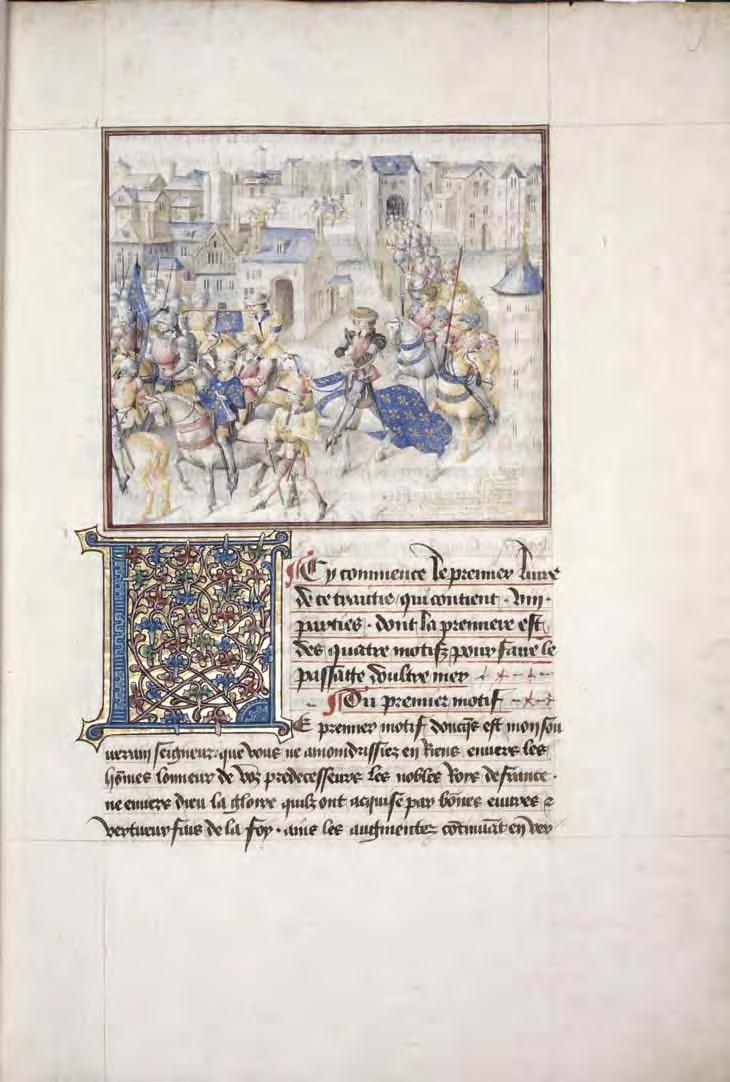 Cy commence le premier liure
de ce traittie / qui contient · viij ·
parties · dont la premiere est
des quatre motifz pour faire le
passatge doultre mer
Du premier motif
E premier motif doncqs est mon sou
uerain seigneur que vous ne amondrissiez en riens enuers les
hommes lonneur de voz predecesseurs les nobles Roys de france ·
ne enuers dieu la gloire quilz ont acquise par bonnes euures &
vertueux fais de la foy · ains les augmentez continuat en vey